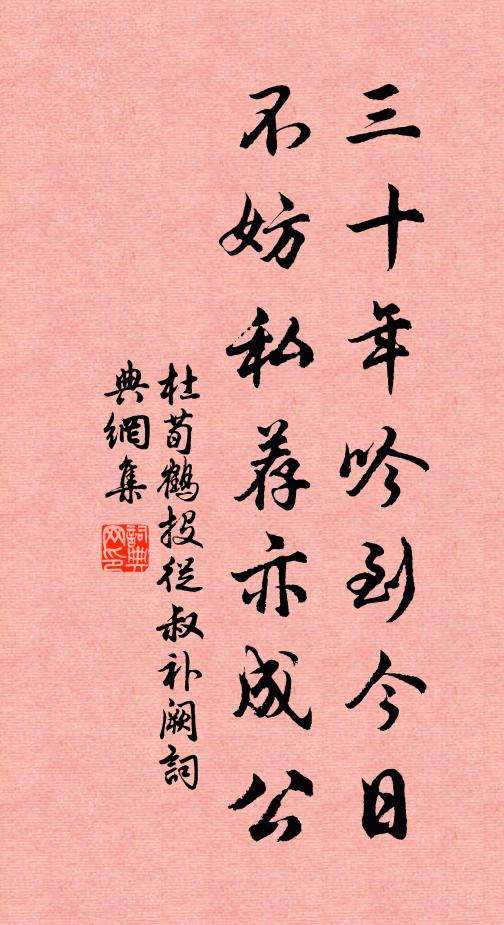 三十年吟到今日
不妨私荐亦成公
杜荀鶴投從叔补阙詞
典網集
詞典
网印